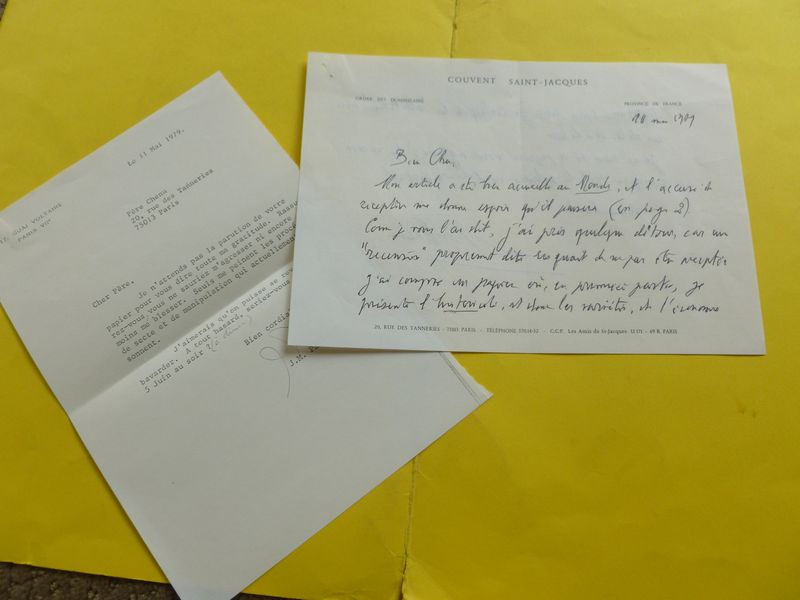 17, QUAI VOLTAIRE
PARIS VII
Le 11 Mai 1979.
Père Chenu
20, rue des Tanneries
75013 Paris
Cher Père,
Je n'attends pas la parution de votre
papier pour vous dire toute ma gratitude. Rassu
rez-vous, vous ne sauriez m'agresser ni encore
moins me blesser. Seuls me peinent les procé
de secte et de manipulation qui actuellement
sonnent.
J'aimerais qu'on puisse se rev
bavarder. A tout hasard, seriez-vous
5 Juin au soir
Bien cordia
J.M.
COUVENT SAINT-JACQUES
ORDRE DES DOMINICAINS
PROVINCE DE FRANCE
10 mai 1979
Bien Cher,
Mon article a été bien accueilli au Monde, et l'accusé de
réception me donne espoir qu'il passera (en page 2).
Comme je vous l'ai dit, j'ai pris quelque détour, car un
"recension" proprement dite risquait de ne pas être acceptée
J'ai composé un papier où, en première partie, je
présente l'historicité, et donc les variétés, et l'économie
20, RUE DES TANNERIES - 75013 PARIS - TÉLÉPHONE - C.C.P. Les Amis de St-Jacques - 69 R. PARIS